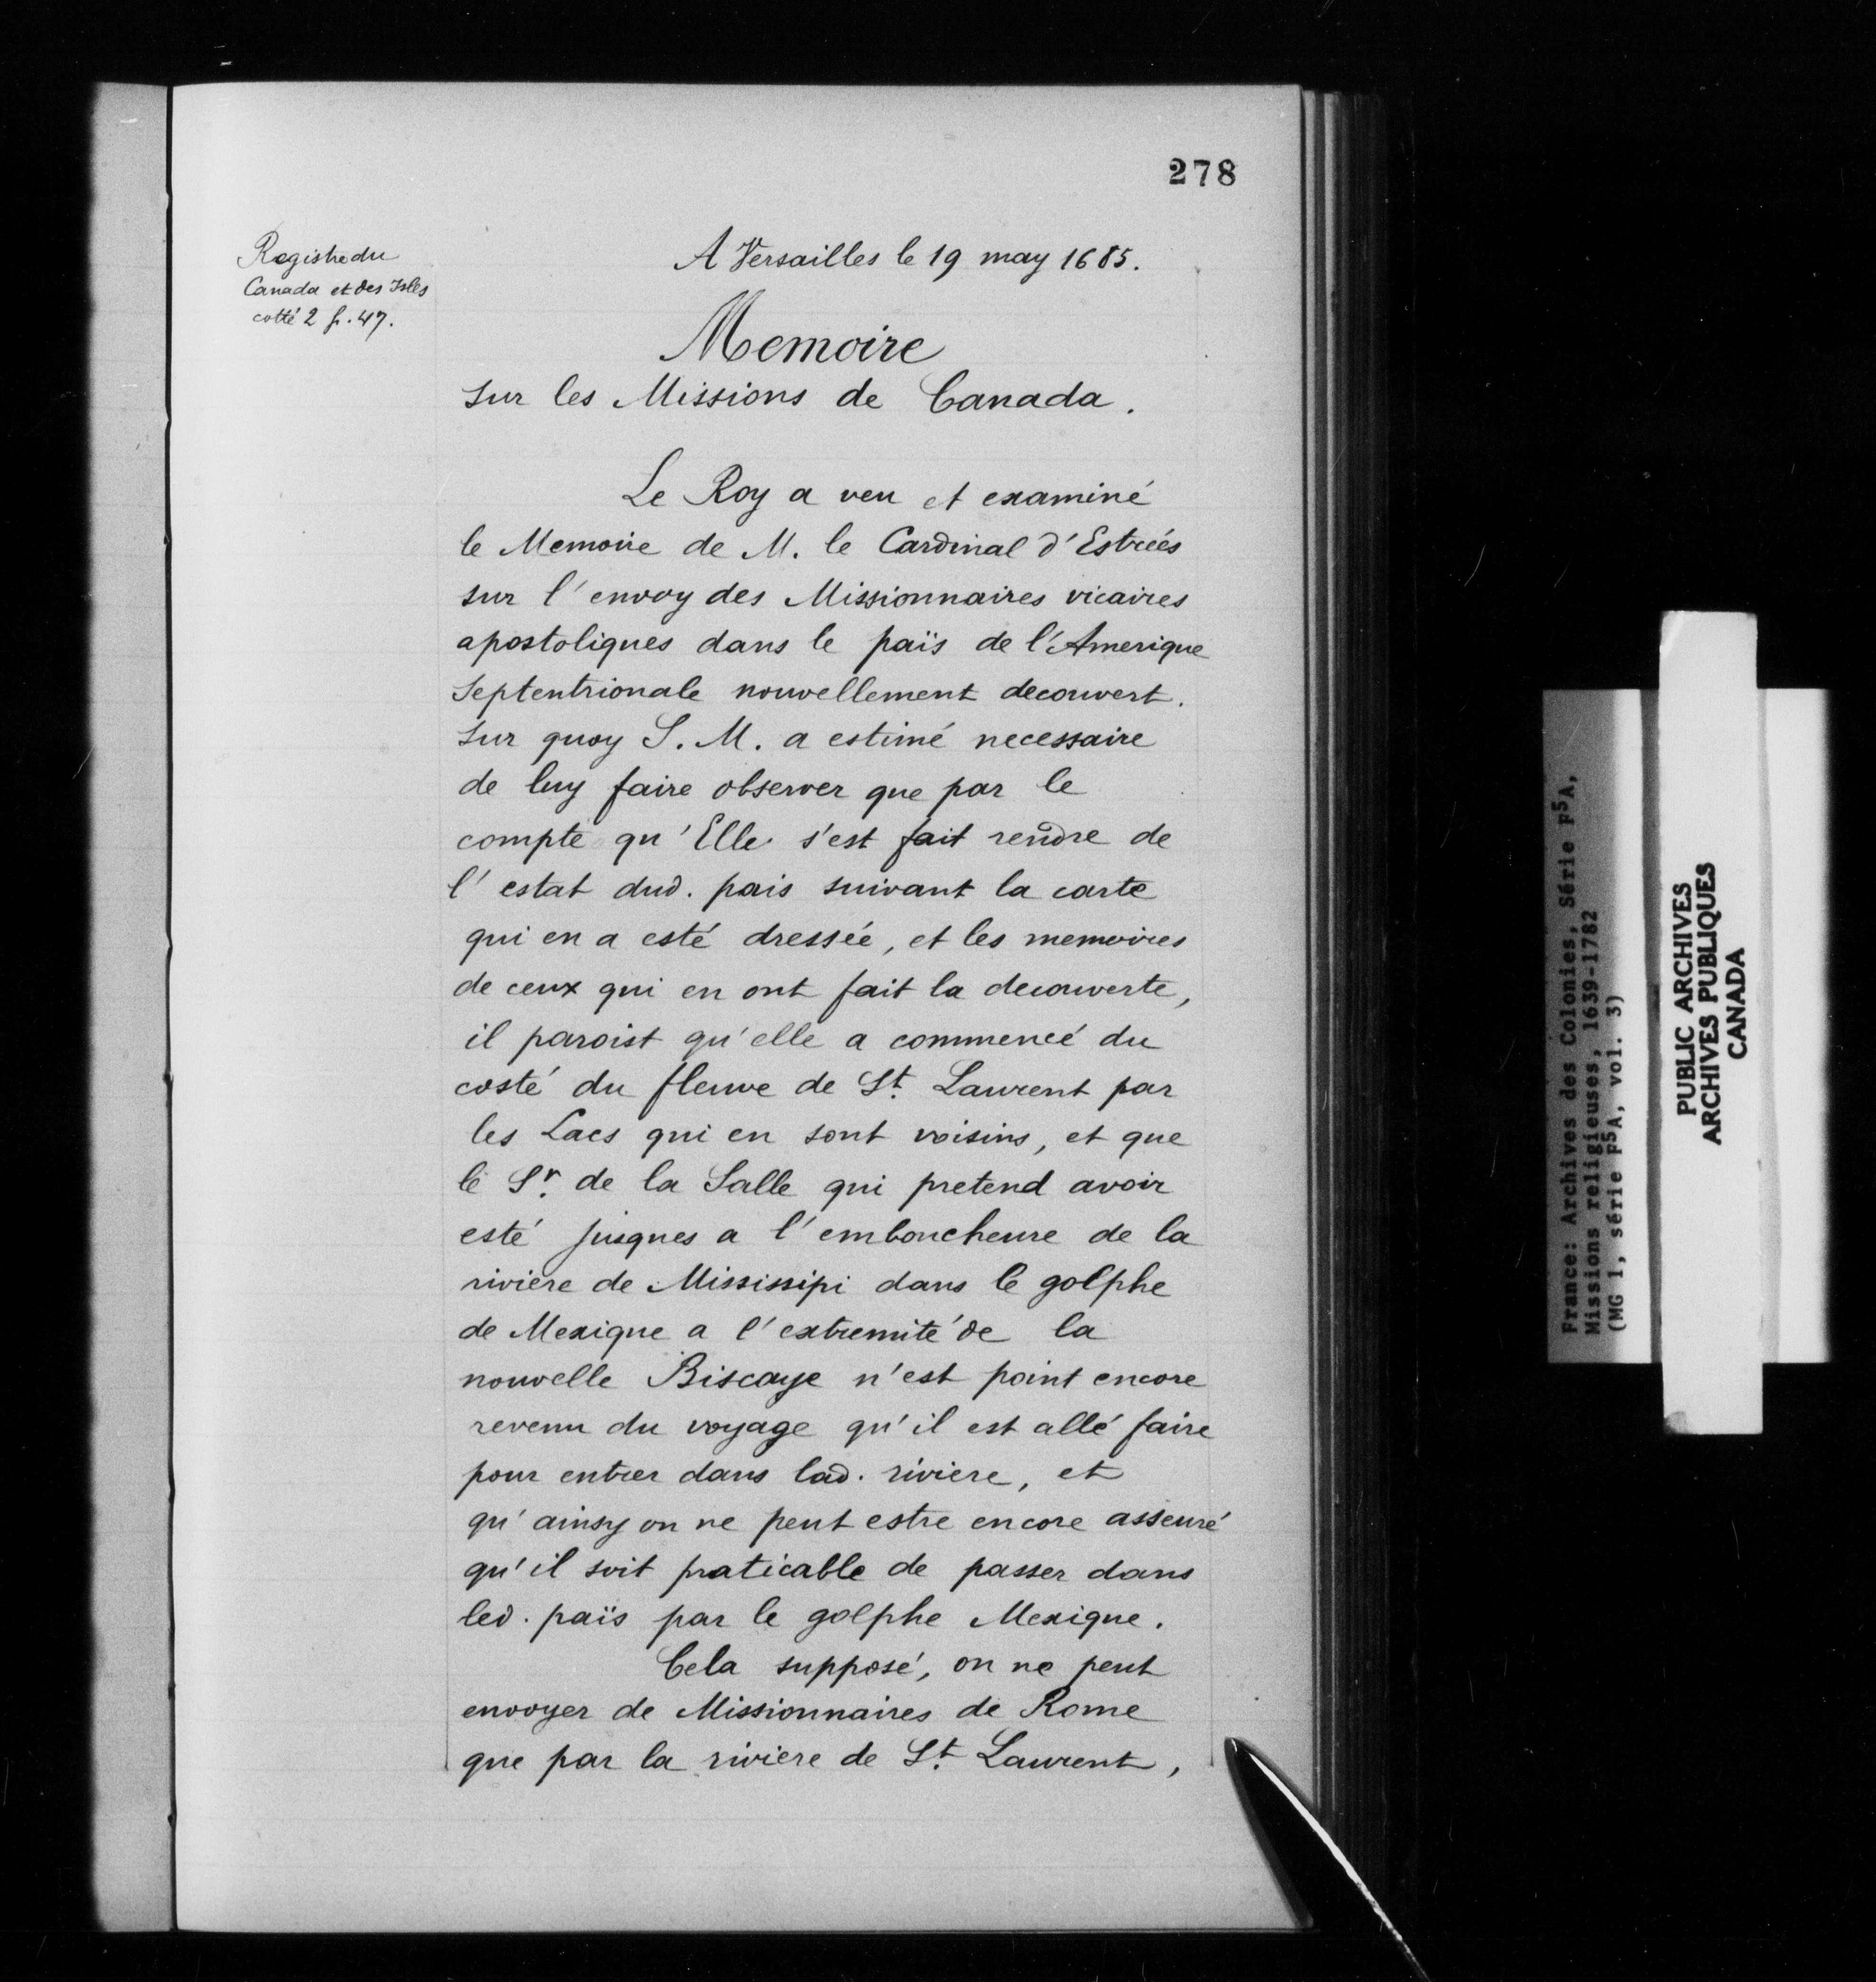 278
Registre du
Canada et des Isles
cotté 2 f. 47.
A Versailles le 19 may 1685.
Memoire
sur les Missions de Canada.
Le Roy a veu et examiné
le Memoire de M. le Cardinal d'Estrées
sur l'envoy des Missionnaires vicaires
apostoliques dans le païs de l'Amerique
Septentrionale nouvellement decouvert.
Sur quoy S. M. a estimé necessaire
de luy faire observer que par le
compte qu'Elle s'est fait rendre de
l'estat dud. pais suivant la carte
qui en a esté dressée, et les memoires
de ceux qui en ont fait la decouverte,
il paroist qu'elle a commencé du
costé du fleuve de St. Laurent par
les Lacs qui en sont voisins, et que
le Sr. de la Salle qui pretend avoir
esté jusques a l'emboucheure de la
riviere de Mississipi dans le golphe
de Mexique a l'extremité de la
nouvelle Biscaye n'est point encore
revenu du voyage qu'il est allé faire
pour entrer dans lad. riviere, et
qu'ainsy on ne peut estre encore asseuré
qu'il soit praticable de passer dans
led. païs par le golphe Mexique.
Cela supposé, on ne peut
envoyer de Missionnaires de Rome
que par la riviere de St. Laurent,
France: Archives des Colonies, Série F5A,
Missions religieuses, 1639-1782
(MG 1, série F5A, vol. 3)
PUBLIC ARCHIVES
ARCHIVES PUBLIQUES
CANADA